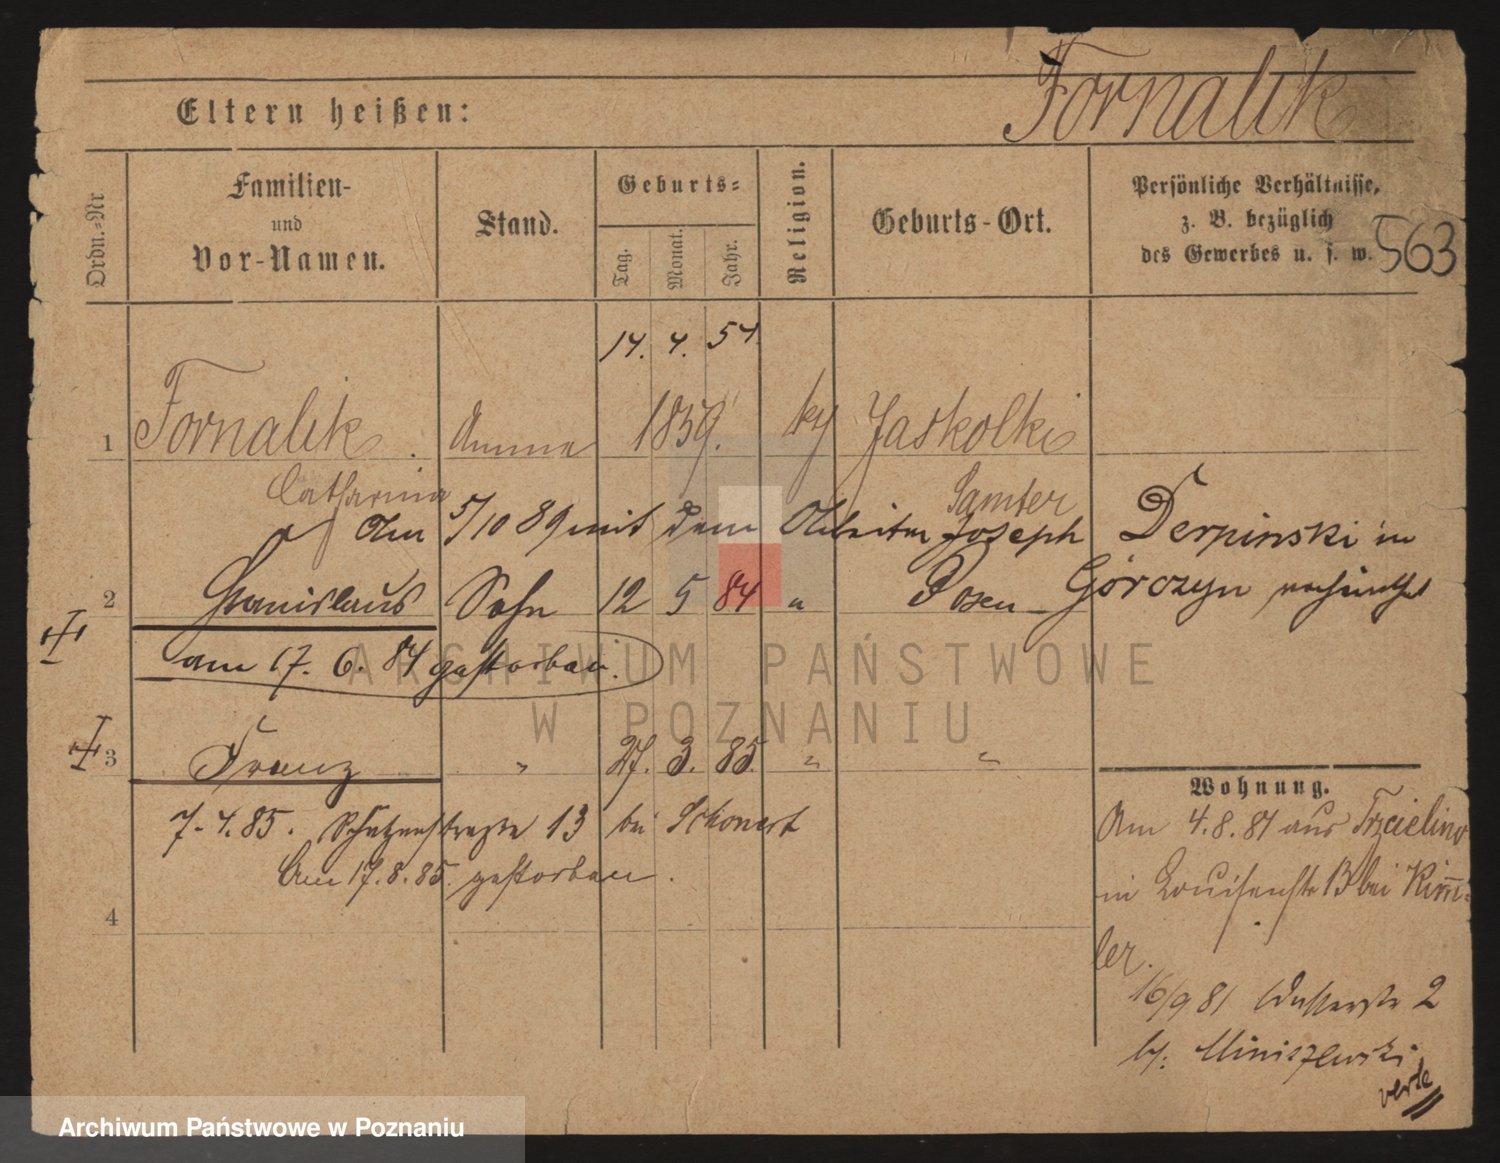 Fornalik
Eltern heißen:
Ordn.-Nr
Familien-
und
Vor-Namen.
Stand.
Geburts-
Tag.
Monat.
Jahr.
Religion.
Geburts-Ort.
Persönliche Verhältnisse,
z. B. bezüglich
des Gewerbes u. s. w.
563
14. 4. 54.
1 Fornalik. Amme 1859. kg Jaskolki
Catharina Samter
Am 5/10 89 mit dem Arbeiter Joseph Derpinski in
2 Stanislaus Sohn 12 5 84 " Posen Górczyn verheirathet
am 17. 6. 84 gestorben.
3 Franz " 27. 3. 85. " "
Wohnung.
7. 4. 85. Schützenstraße 13 bei Schonert
Am 17. 8. 85. gestorben.
4
Am 4. 8. 81 aus Trzcielino
in Louisenstr 13 bei Kim̅-
ler.
16/9 81 Wasserstr 2
b. Miniszewski.
verte
ARCHIWUM PAŃSTWOWE
W POZNANIU
Archiwum Państwowe w Poznaniu